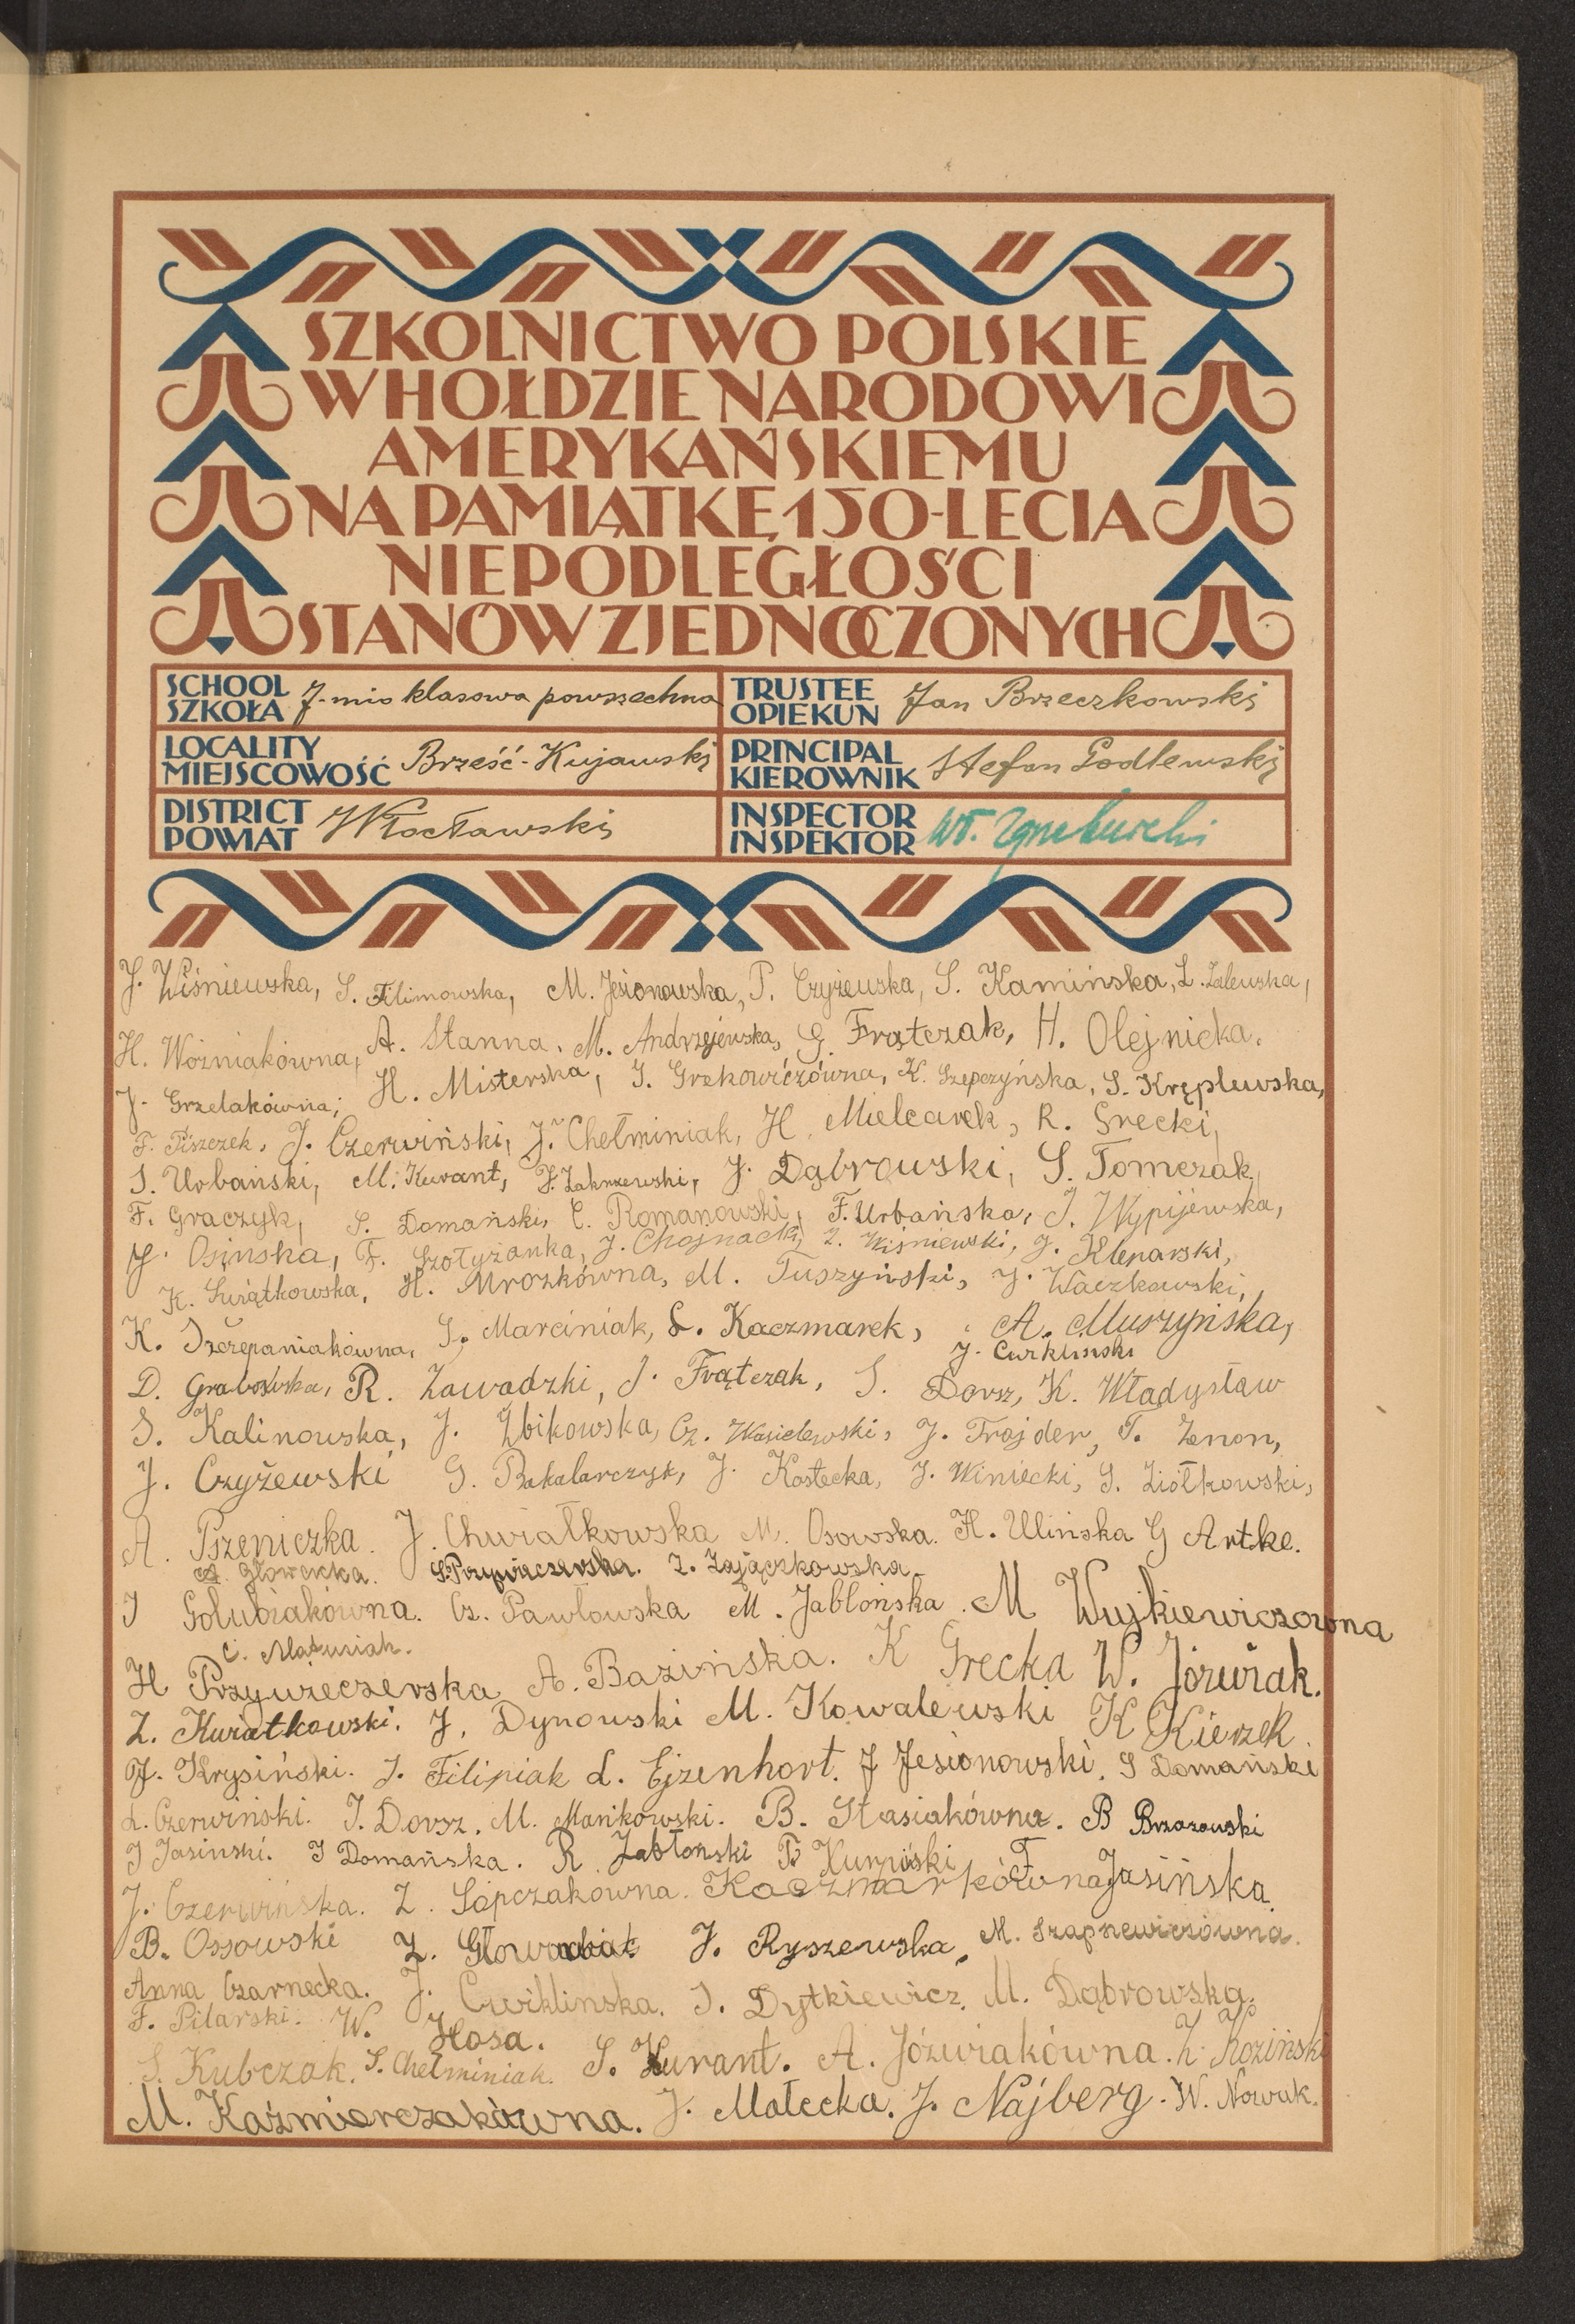 SZKOLNICTWO POLSKIE
W HOŁDZIE NARODOWI
AMERYKAŃSKIEMU
NA PAMIĄTKĘ 150-LECIA
NIEPODLEGŁOŚCI
STANÓW ZJEDNOCZONYCH
SCHOOL
SZKOŁA 7-mio klasowa powszechna
TRUSTEE
OPIEKUN Jan Brzeczkowski
LOCALITY
MIEJSCOWOŚĆ Brześć-Kujawski
PRINCIPAL
KIEROWNIK Stefan Godlewski
DISTRICT
POWIAT Włocławski
INSPECTOR
INSPEKTOR Wł.
J. Wiśniewska, S. Filimowska, M. Jesionowska, P. Czyżewska, S. Kamińska, L. Zalewska,
H. Woźniakówna, A. Stanna, M. Andrzejewska, G. Frątczak, H. Olejnicka.
J. Grzelakówna, H. Misterska, J. Grzkowiczówna, K. Szepczyńska, S. Kręplewska,
F. Piszczek, J. Czerwiński, J. Chełminiak, H. Mielcarek, R. Grecki,
S. Urbański, M. Kurant, J. Zakrzewski, J. Dąbrowski, S. Tomczak,
F. Graczyk, S. Domański, C. Romanowski, F. Urbańska, J. Wypijewska,
J. Osińska, F. Szołyżanka, J. Chojnacki, Z. Wiśniewski, J. Klenarski,
K. Świątkowska, H. Mrozkówna, M. Tuszyński, J. Waczkowski,
K. Szczepaniakówna, S. Marciniak, L. Kaczmarek, A. Muszyńska,
J. Ćwikliński
D. Grabowska, R. Zawadzki, J. Frątczak, S. Dorsz, K. Władysław
S. Kalinowska, J. Zbikowska, Cz. Wasielewski, J. Trojder, T. Zenon,
J. Czyżewski G. Bakalarczyk, J. Kostecka, J. Winiecki, S. Ziółkowski,
A. Pszeniczka. J. Chwiałkowska M. Osowska. H. Ulińska G Artke.
Głowacka. S. Przywieczerska. Z. Zajączkowska
J Golubiakówna. Cz. Pawłowska M. Jabłońska. M Wujkiewiczówna
C. Matusiak.
H Przywieczerska A. Bazińska. K Grecka W. Jóźwiak.
Z. Kwiatkowski. J. Dynowski M. Kowalewski K Kierzek
J. Krysiński. J. Filipiak L. Ejzenhort. J Jesionowski. S Domański
L. Czerwiński. J. Dorsz. M. Mańkowski. B. Stasiakówna. B Brzozowski
J Jasinski. J Domańska. R. Jabłoński T. Kurpiński F
J. Czerwińska. Z. Sopczakowna. Kaczmarkówna Jasińska.
B. Ossowski Z. J. Ryszewska, M. Szapnewiczówna.
Anna Czarnecka. J. Cwiklinska. S. Dytkiewicz. M. Dąbrowska.
F. Pilarski. W. Hosa.
S. Kubczak. S. Chełminiak. S. Kurant. A. Jóźwiakówna. Z. Koziński
M. Kaźmierczakówna. J. Małecka. J. Najberg. W. Nowak.